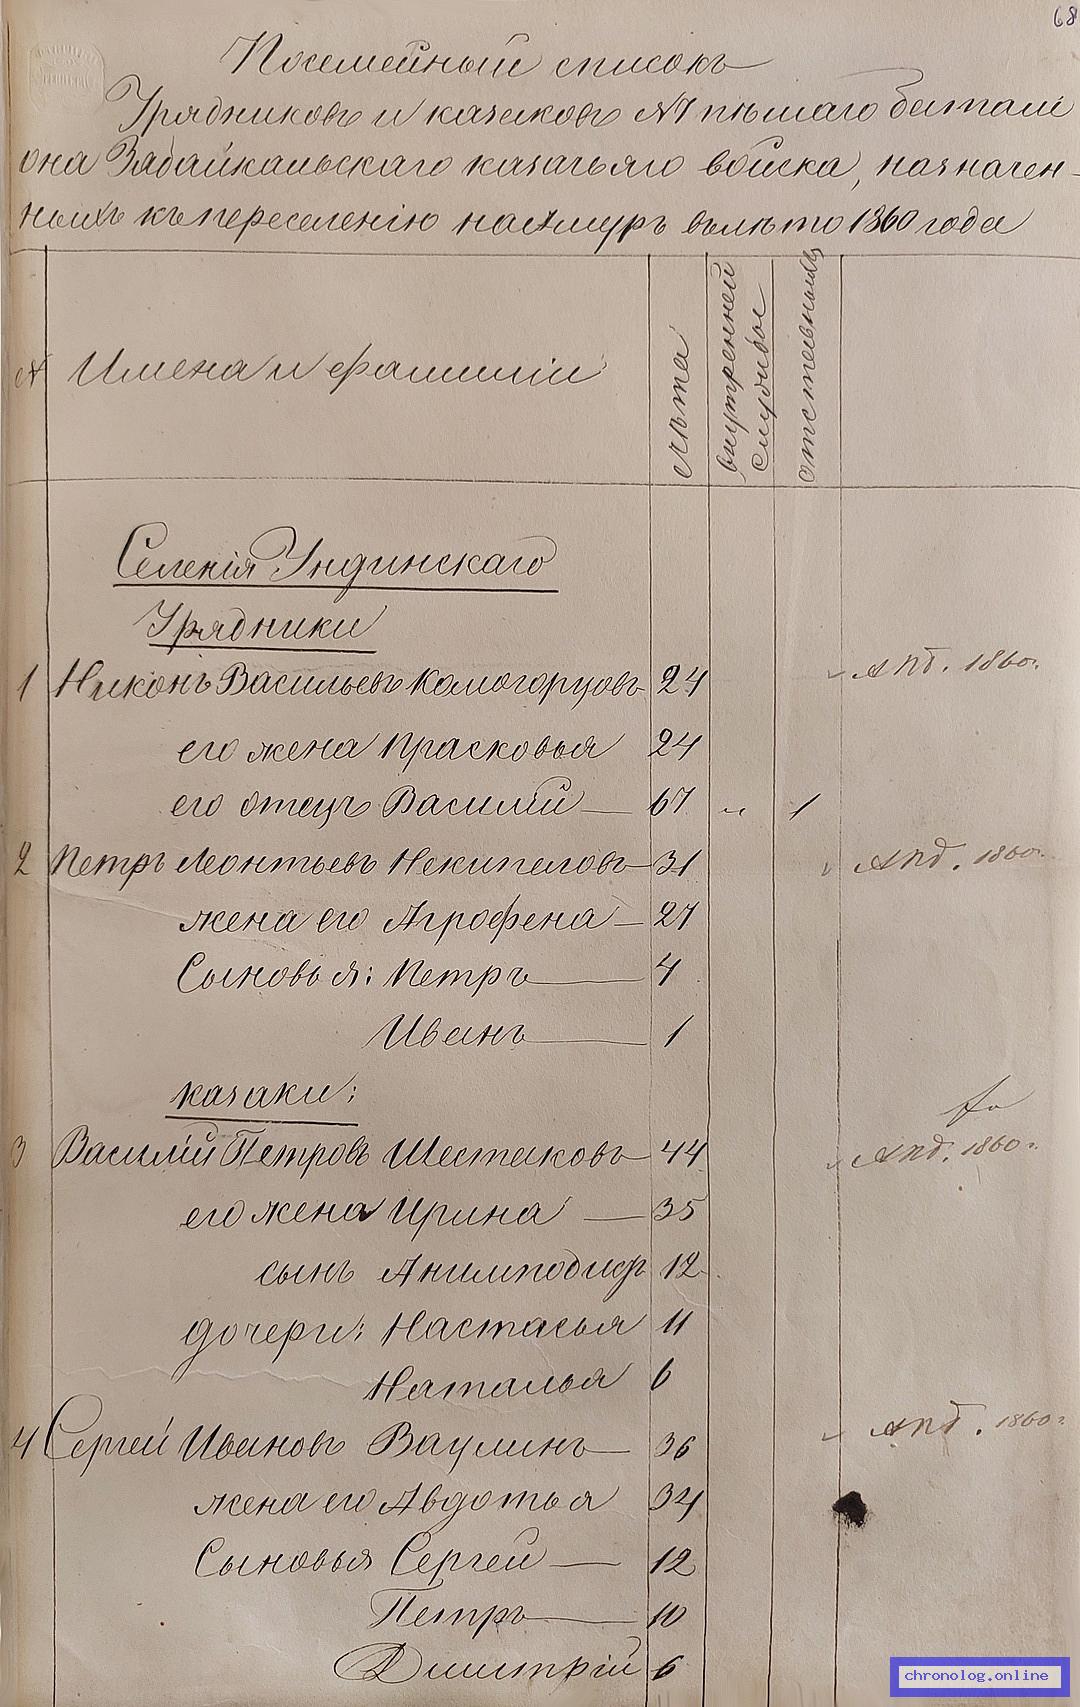 68
Посемейный списокъ
Урядниковъ и казаковъ №7 пѣшаго баталi
она Забайкальскаго казачьяго войска, назначен-
ныхъ къ переселенію на Амуръ въ лѣто 1860 года
№ Имена и фамиліи лѣта внутренней службы отставныхъ
Селенія Ундинскаго
Урядники
1 Никонъ Васильевъ Комогорцовъ 24 1860г.
его жена Прасковья 24
его отецъ Василій 67 " 1
2 Петръ Леонтьевъ Некипеловъ 31 1860г.
жена его Агрофена 27
Сыновья: Петръ 4
Иванъ 1
казаки:
3 Василій Петровъ Шестаковъ 44 1860г.
его жена Ирина 35
сынъ Анимподифъ 12
дочери: Настасья 11
Наталья 6
4 Сергей Ивановъ Ваулинъ 36 1860г.
жена его Авдотья 34
Сыновья Сергей 12
Петръ 10
Димитрій 6
chronolog.online